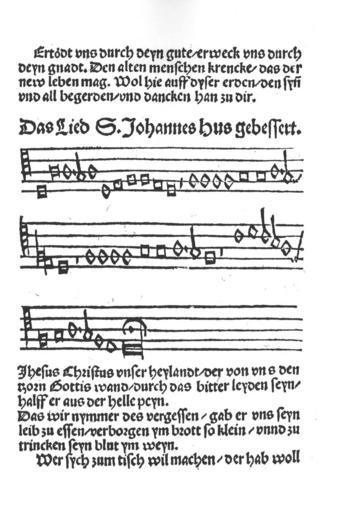 Ertödt vns durch deyn gute/erweck vns durch
deyn gnadt. Den alten menschen krencke/das der
new leben mag. Wol hie auff dyser erden/den syn
vnd all begerden/vnd dancken han zu dir.
Das Lied S. Johannes Hus gebessert.
Jhesus Christus vnser heylandt/der von vns den
tzorn Gottis wand/durch das bitter leyden seyn/
halff er aus der helle peyn.
Das wir nymmer des vergessen/gab er vns seyn
leib zu essen/verborgen ym brott so klein/vnnd zu
trincken seyn blut ym weyn.
Wer sych zum tisch wil machen/der hab woll